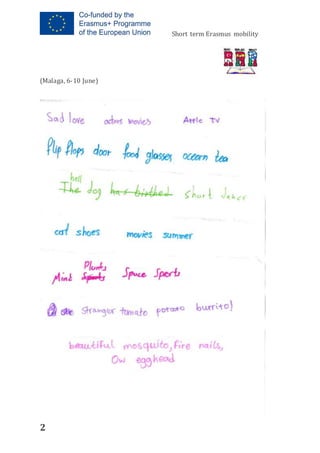 Co-funded by the
Erasmus+ Programme
of the European Union
Short term Erasmus mobility
(Malaga, 6-10 June)
Sad love actors movies Apple TV
flip flops door food glasses ocearn tea
hell
The dog has birthed Short
cat shoes movies summer
Plants
Mind Sports Space Sports
Stranger tomato potato burrito)
beautiful mosquito, fire nails,
Ow egghead
2